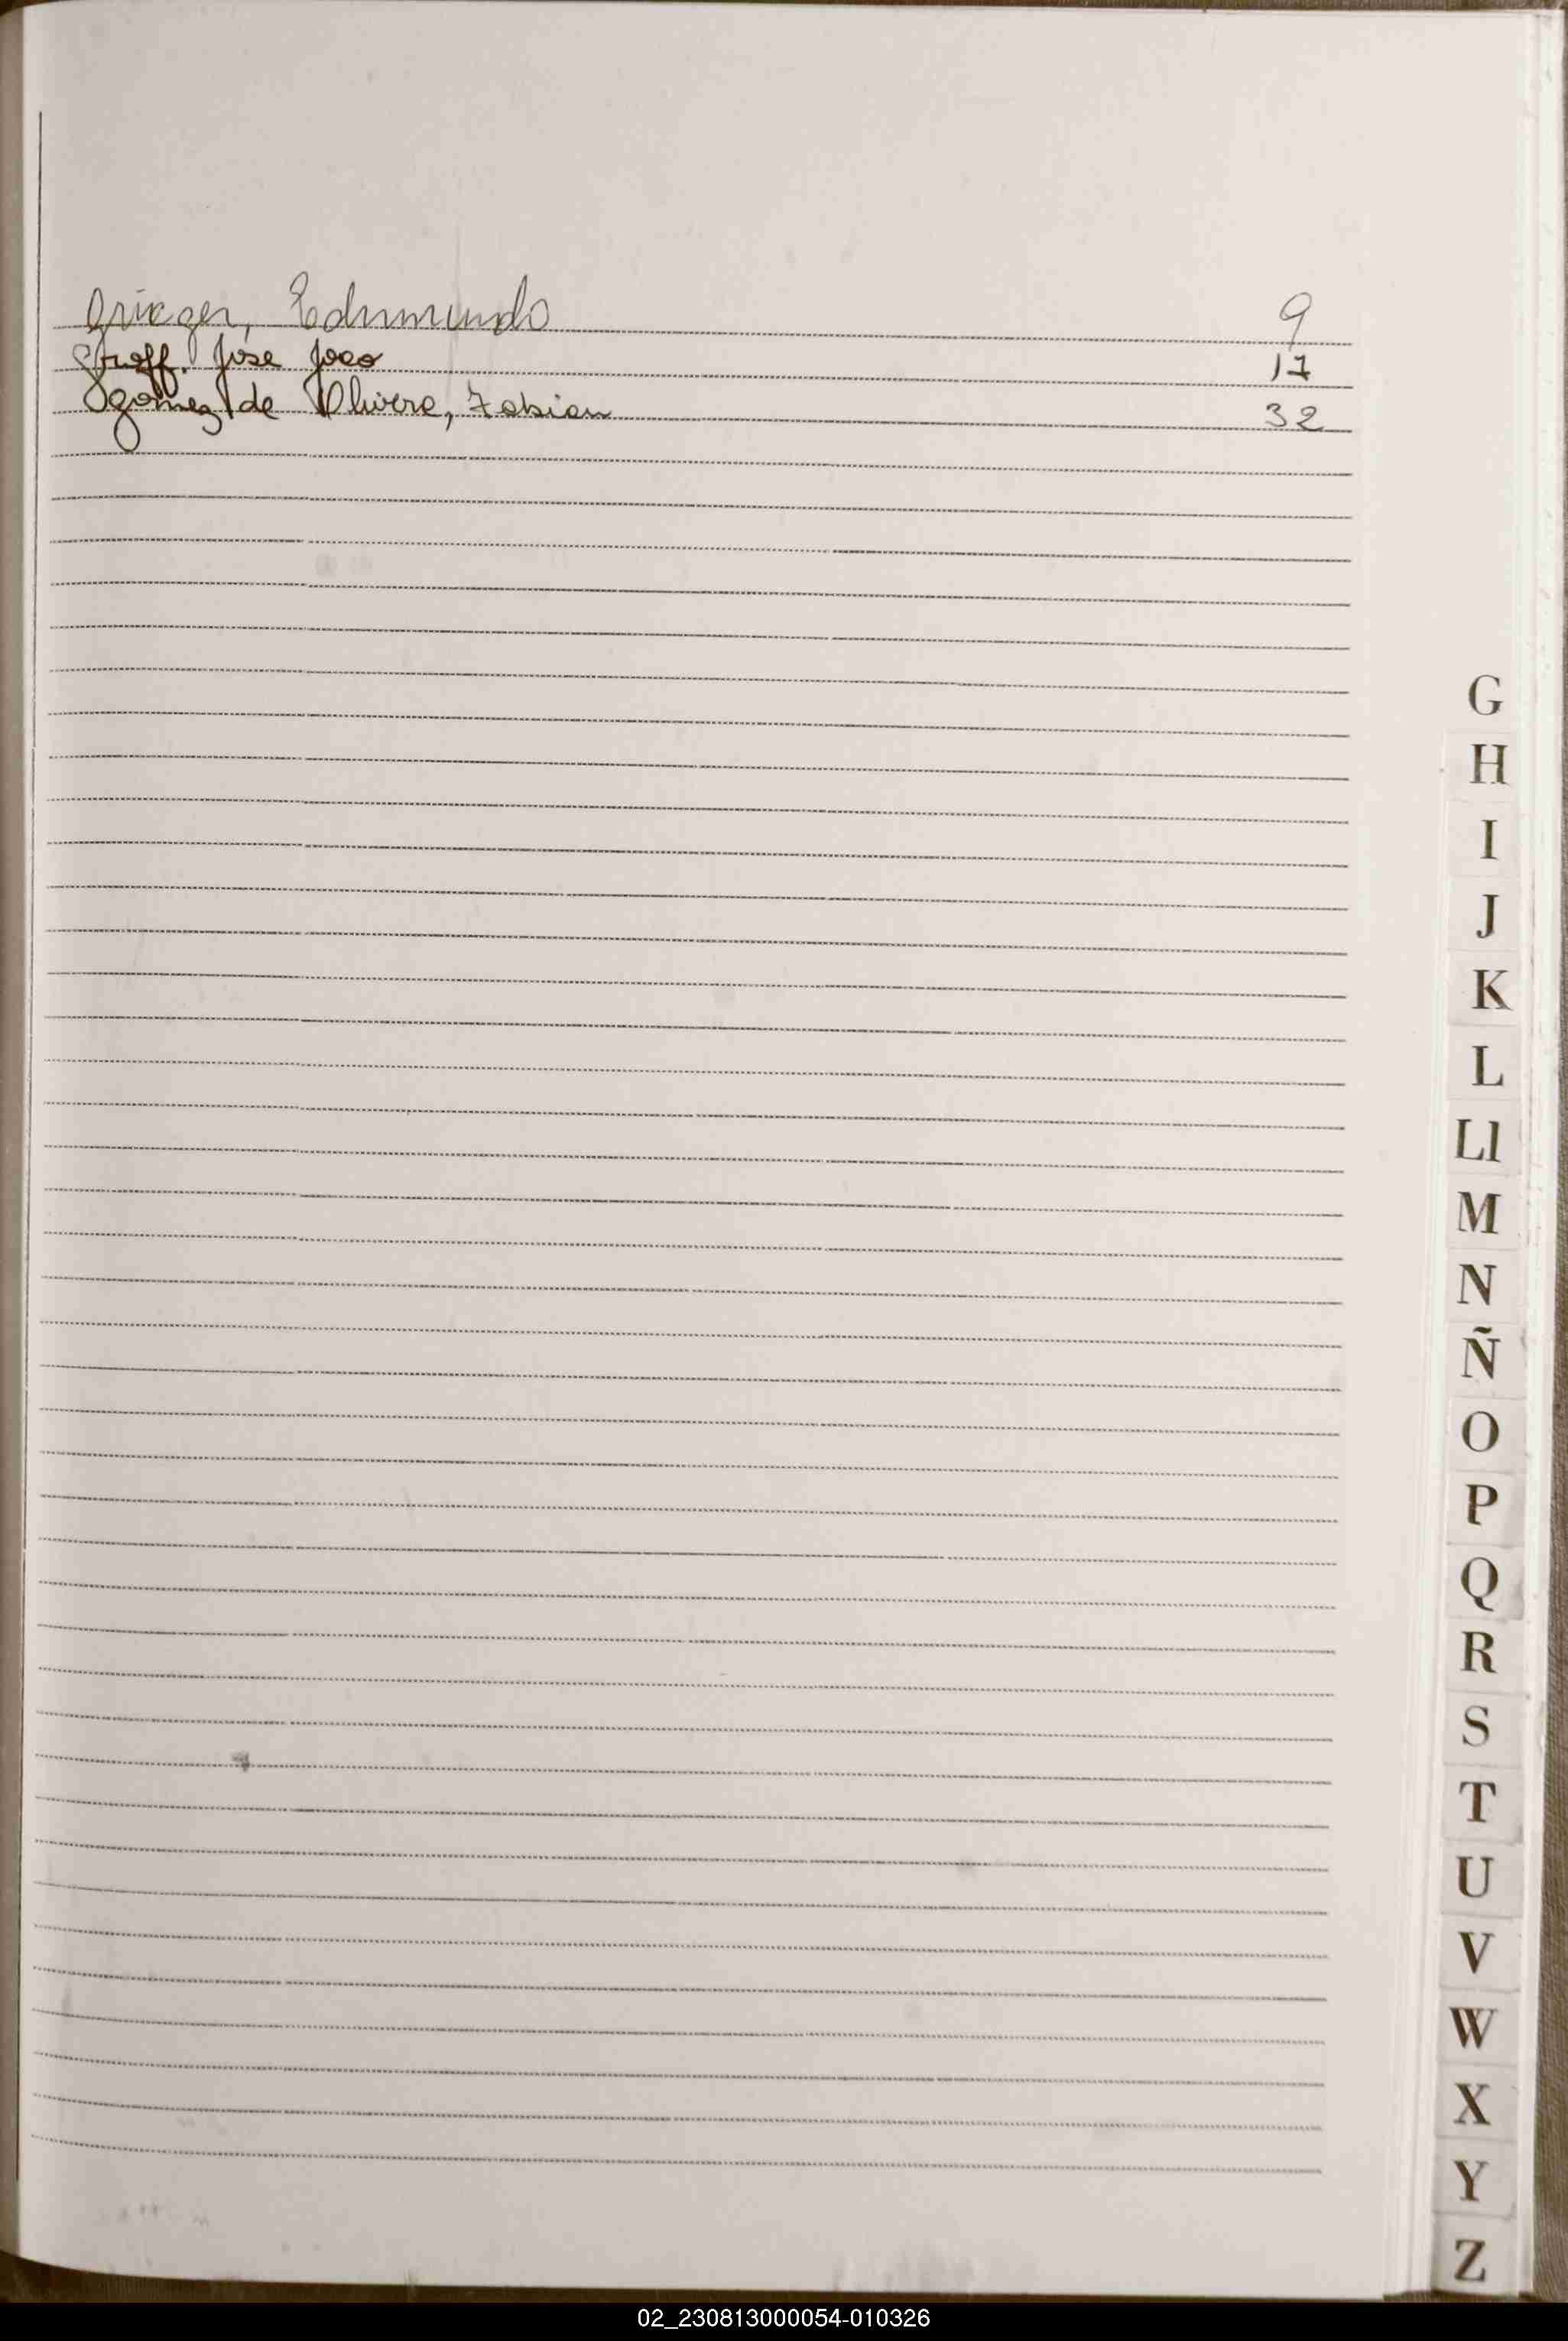 Grieger, Edmundo 9
Groff. José João 17
Gomez de Olivera, Fabian 32
G
H
I
J
K
L
Ll
M
N
Ñ
O
P
Q
R
S
T
U
V
W
X
Y
Z
02_230813000054-010326